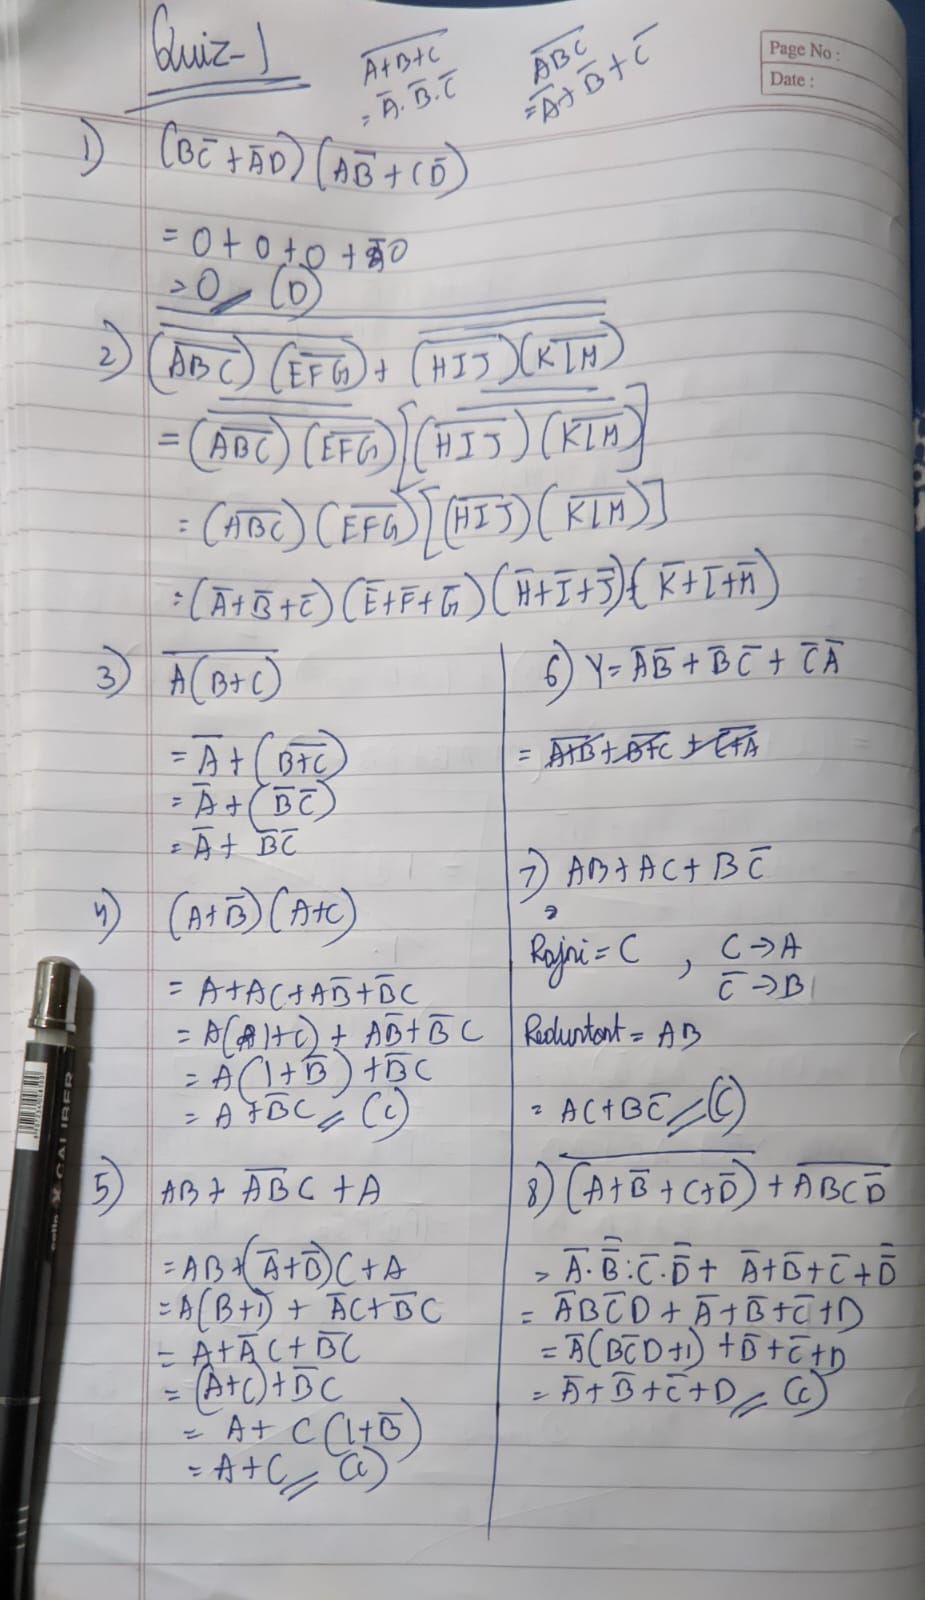 Quiz-1
A̅+̅B̅+̅C̅
= A̅.B̅.C̅
A̅B̅C̅
= A̅+B̅+C̅
Page No :
Date :
1) (BC̅ + A̅D) (AB̅ + CD̅)
= 0 + 0 + 0 + 0
= 0 (D)
2) (ABC) (EFG) + (HIJ) (KLM)
= (ABC) (EFG) [(HIJ) (KLM)]
= (ABC) (EFG) [(HIJ) (KLM)]
= (A̅+B̅+C̅) (E̅+F̅+G̅) (H̅+I̅+J̅) (K̅+L̅+M̅)
3) A̅(̅B̅+̅C̅)̅
= A̅ + (B̅+̅C̅)
= A̅ + (B̅C̅)
= A̅ + B̅C̅
4) (A+B̅) (A+C)
= A+AC+AB̅+B̅C
= A(1+C) + AB̅+B̅C
= A(1+B̅) + B̅C
= A+B̅C (C)
5) AB + A̅B̅C + A
= AB+(A̅+B̅)C+A
= A(B+1) + A̅C+B̅C
= A+A̅C+B̅C
= (A+C)+B̅C
= A+ C(1+B̅)
= A+C (C)
6) Y= A̅B̅ + B̅C̅ + C̅A̅
= A̅+̅B̅ + B̅+̅C̅ + C̅+̅A̅
7) AB+AC+BC̅
=
Rajni = C , C→A
C̅→B
Reduntant = AB
= AC+BC̅ (C)
8) (̅A̅+̅B̅+C̅+̅D̅)̅ + A̅B̅C̅D̅
= A̅.B̿.C̅.D̿ + A̅+B̅+C̅+D̿
= A̅BC̅D + A̅+B̅+C̅+D
= A̅(BC̅D+1) + B̅+C̅+D
= A̅+B̅+C̅+D (C)